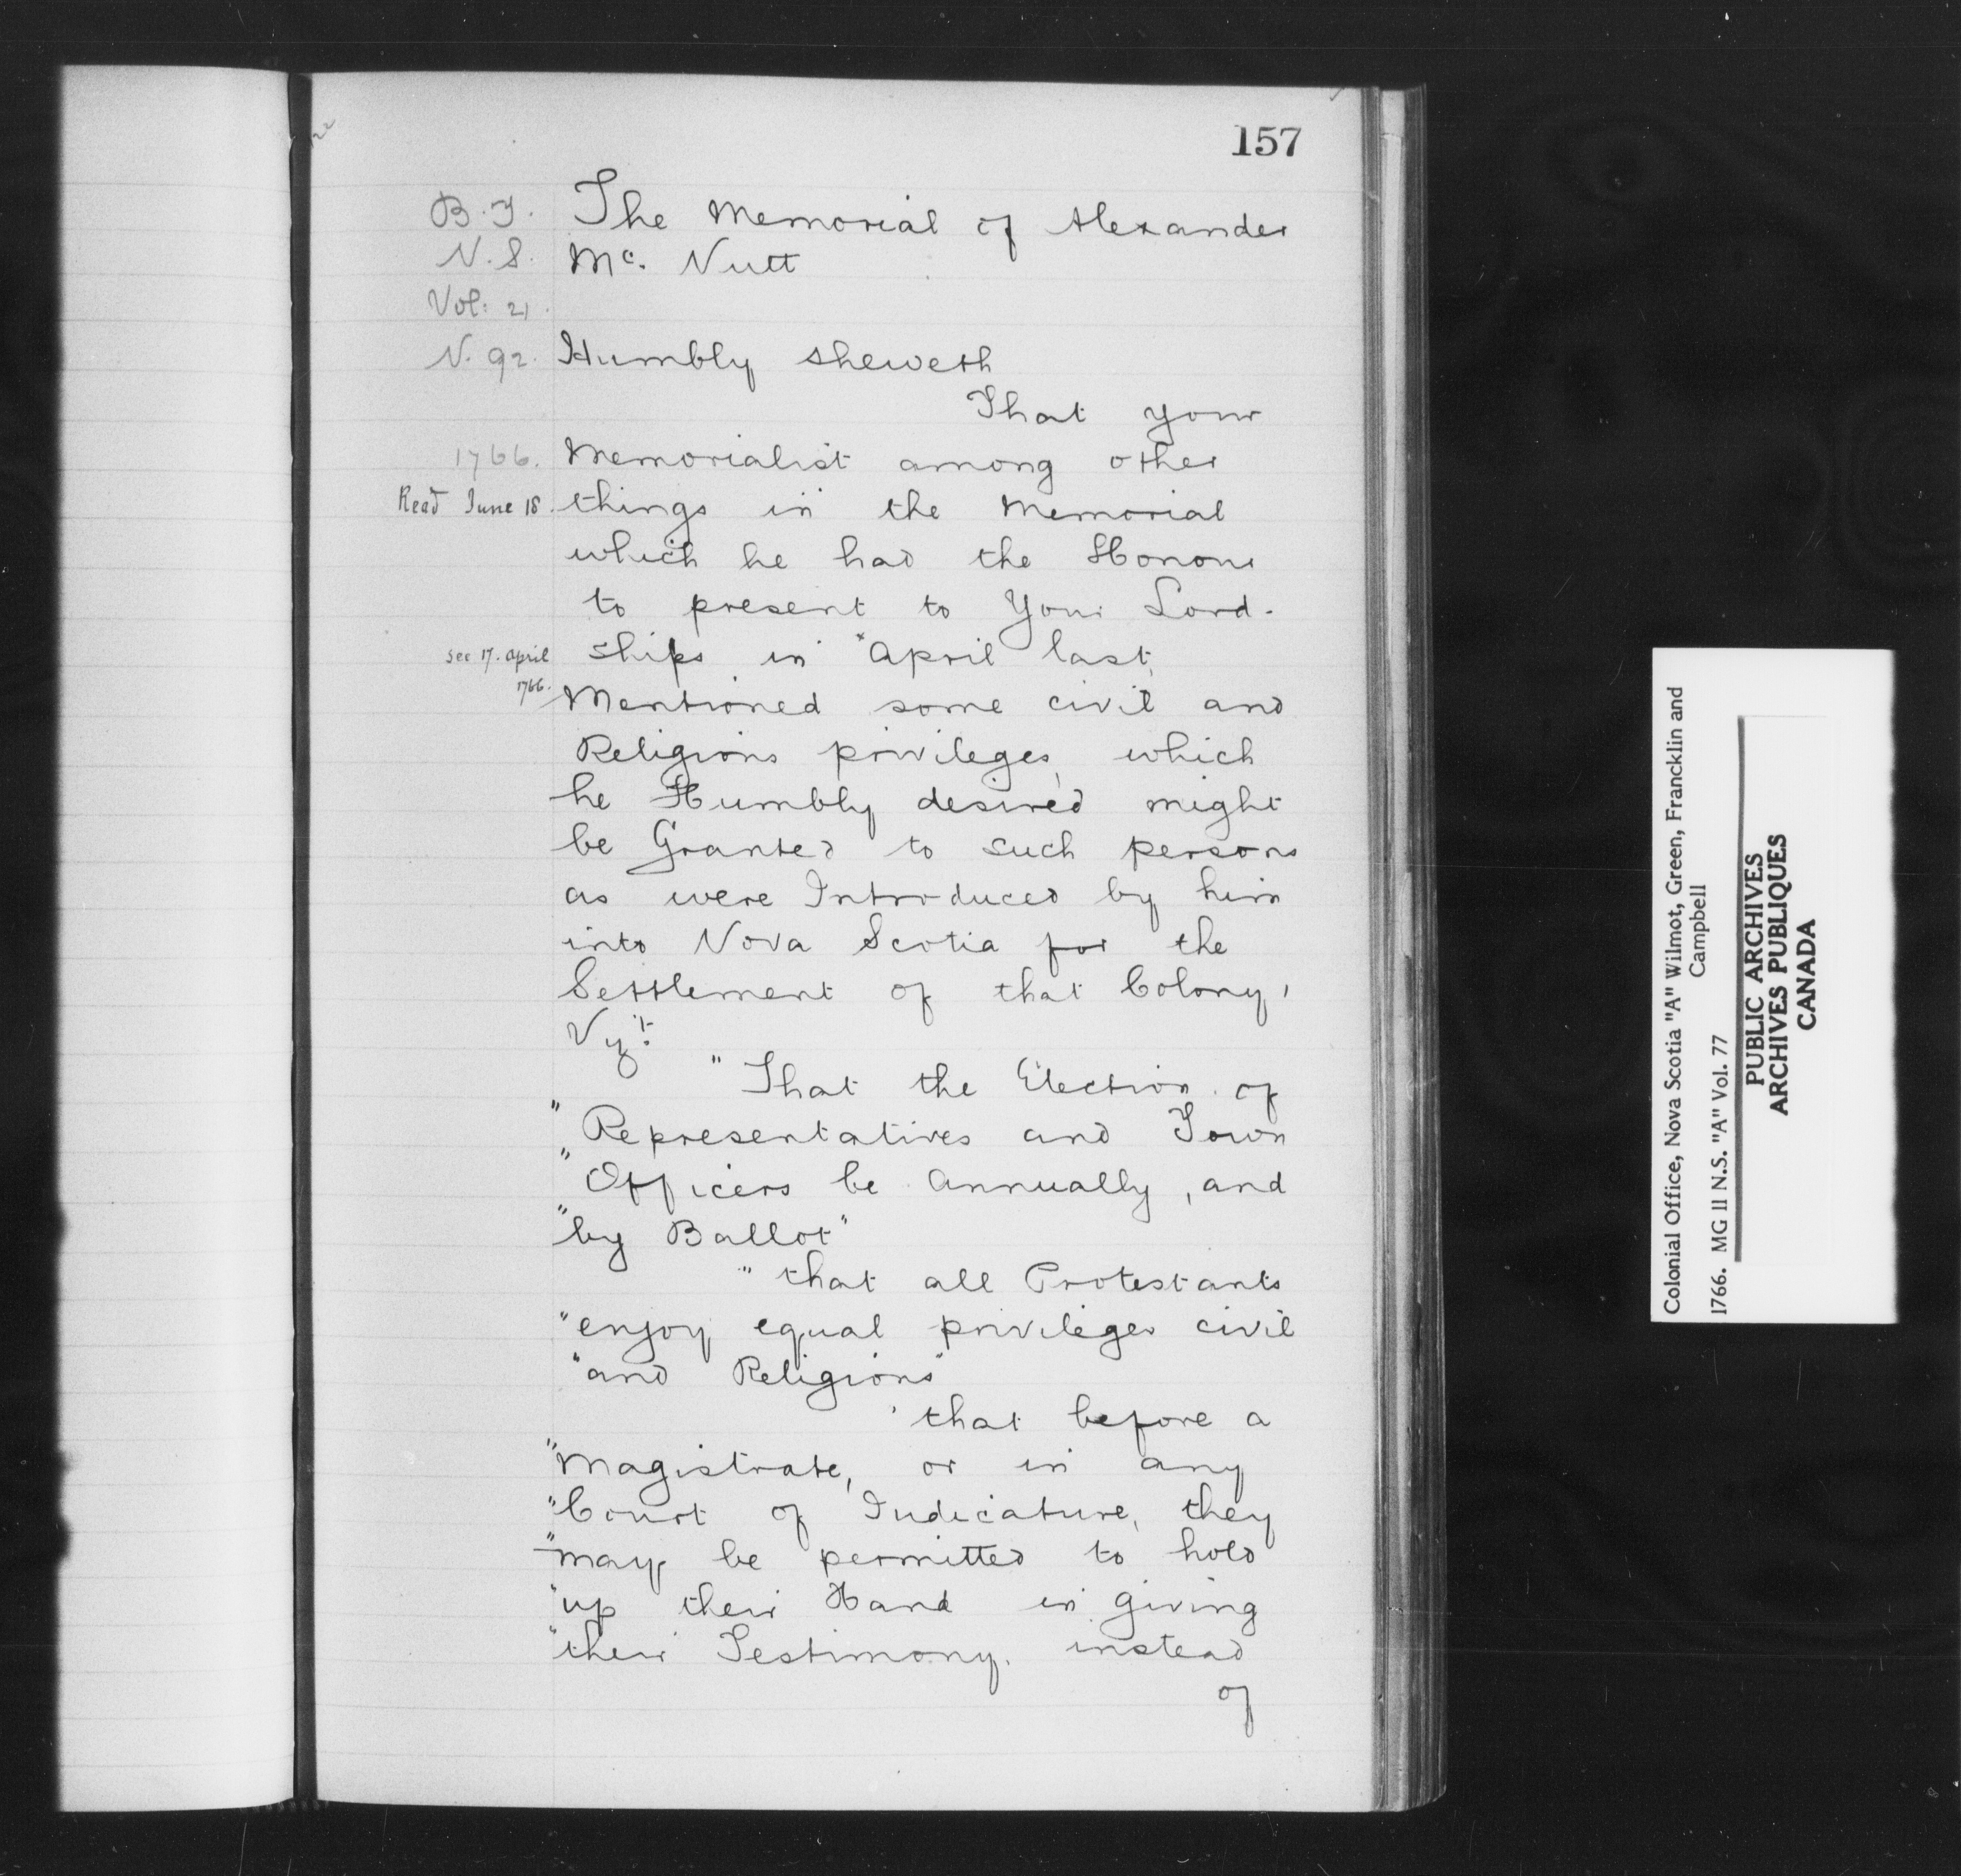 157
B.T.
N.S.
Vol: 21.
N. 92.
1766.
Read June 18.
see 17. April
1766.
The Memorial of Alexander
Mc. Nutt
Humbly sheweth
That your
Memorialist among other
things in the Memorial
which he had the Honour
to present to Your Lord-
ships in *April last,
Mentioned some civil and
Religious privileges, which
he Humbly desired might
be Granted to such persons
as were Introduced by him
into Nova Scotia for the
Settlement of that Colony,
Vizt:
"That the Election of
"Representatives and Town
"Officers be Annually, and
"by Ballot"
"that all Protestants
"enjoy equal privileges civil
"and Religious"
'that before a
"Magistrate, or in any
"Court of Judicature, they
"may be permitted to hold
"up their Hand in giving
"their Testimony. instead
of
Colonial Office, Nova Scotia "A" Wilmot, Green, Francklin and
Campbell
1766. MG 11 N.S. "A" Vol. 77
PUBLIC ARCHIVES
ARCHIVES PUBLIQUES
CANADA